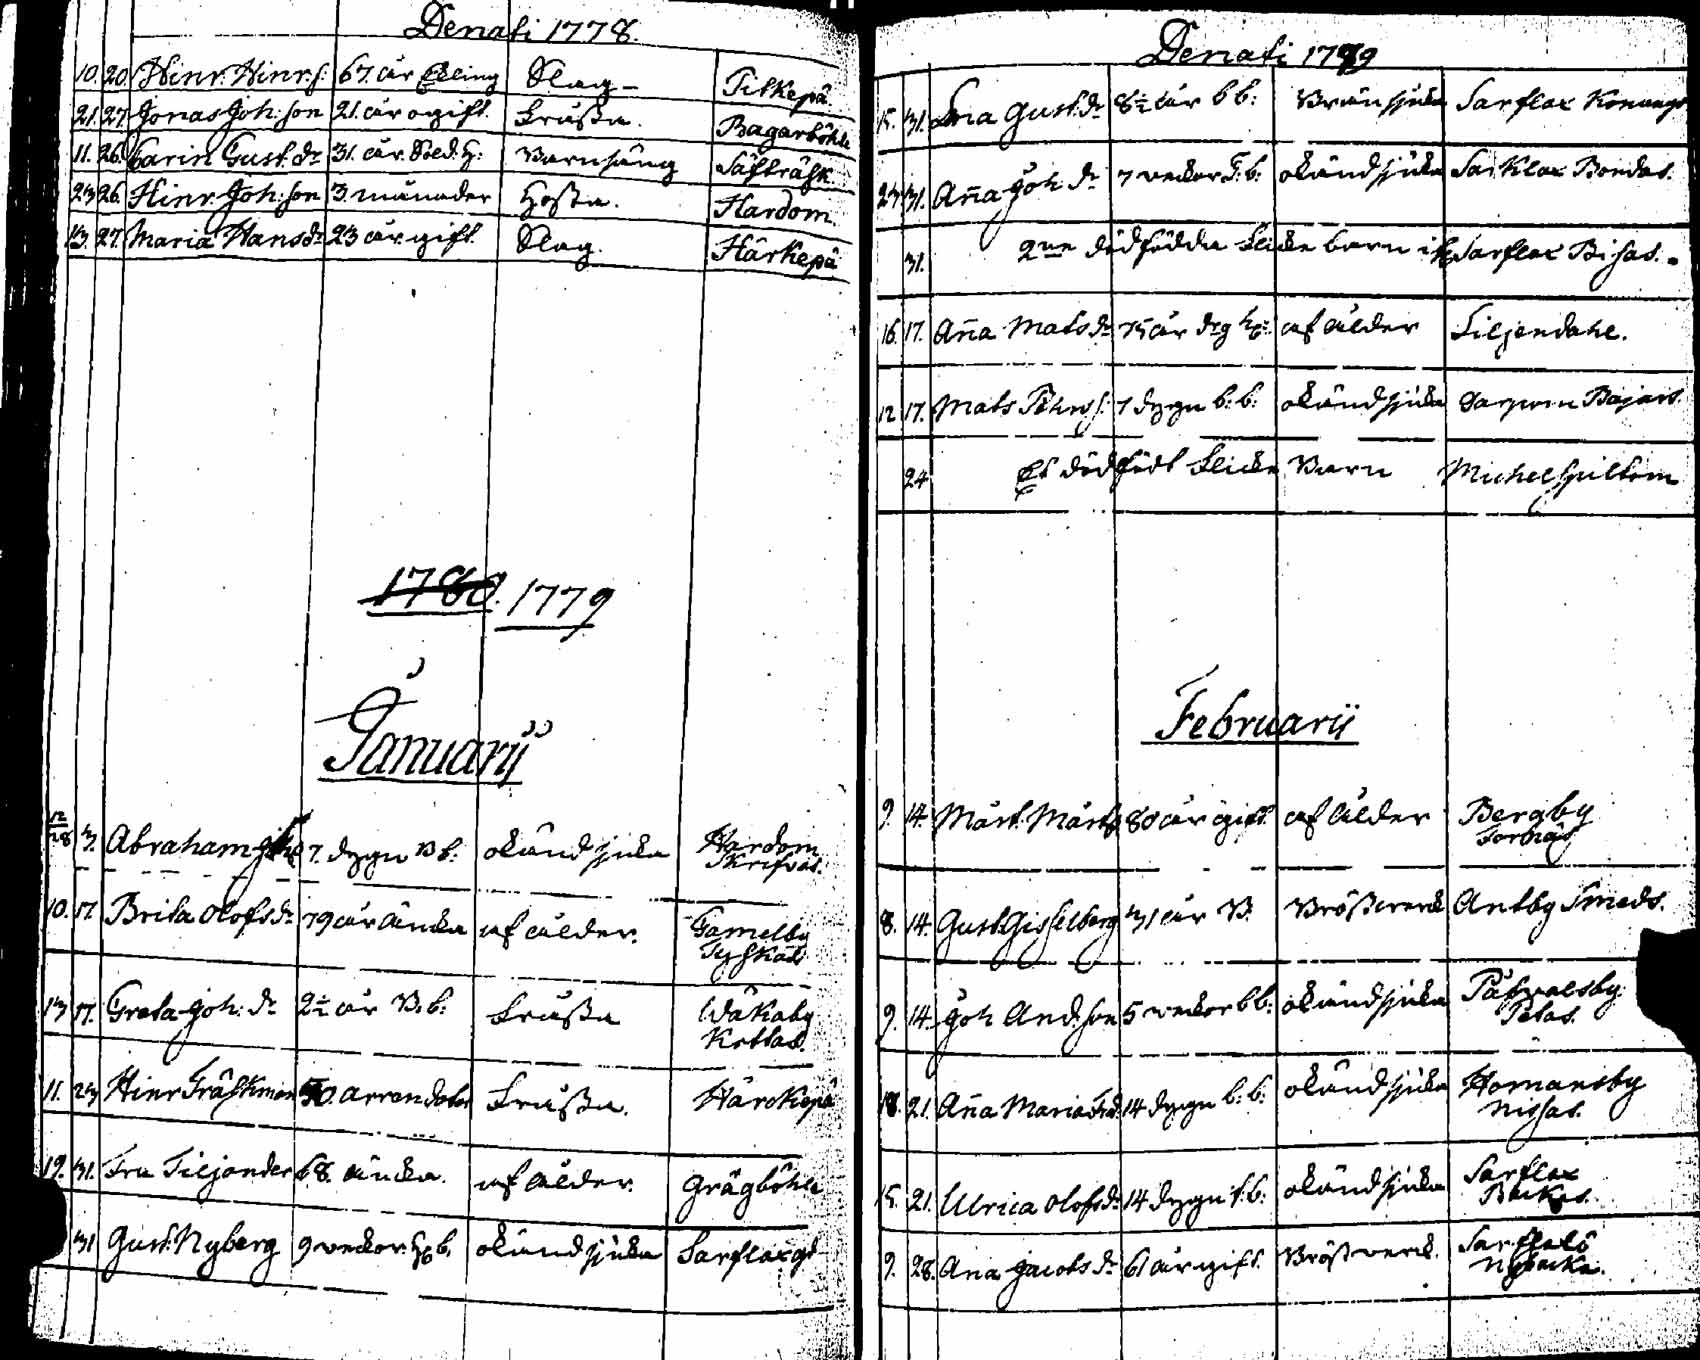 Denati 1778.
10. 20. Hinr. Hinr.s: 67. år Esling Slag - Titkepä
21. 27 Jonas Joh:son 21. år ogift. Trässa. Bagarböhle
11. 26. Carin Gust. dr 31. år. Sold. H: Barnsäng Säfträsk
23 26. Hinr Joh:son 3. månader Hosta. Hardom
13. 27. Maria Hansdr 23 år gift. Slag. Härkepä
1780. 1779
Januarij
12/28 3. Abraham 7. dygn B b: okänd sjuka Hardom
Skrifvas.
10. 17. Brita Olofs dr 79 år änka af ålder. Gamelby
Tyskas
13 17. Greta Joh: dr 2½ år B. b: Wåkaby
Kettas.
11. 23 Hinr Träskman 50. arrendator Härckepä
19. 31. Fru Tiljander 68. änka. af ålder. Grägböhle
31 Gust. Nyberg 9 veckor okänd sjuka Sarflax gd
Denati 1779
15. 31. Gust. dr 8½ år b b: Bränsjuka Sarflax
23 31. Aña Joh. dr 7 veckor T. b: okänd sjuka Sarklax Bondas.
31. 2ne dödfödda flicke barn Sarflax Bisas.
16. 17. Aña Mats dr 75 år af ålder Liljendahl.
12 17. Mats 7 dygn b. b: okänd sjuka Bajars.
24 Et dödfödt flicke Barn Michelspiltom
Februarii
9. 14. Mårt. Mårts 80 år gift. af ålder Bergby
Tornäs
8. 14. Gust. Gisselberg 31 år B. Bröstwerk Antby Smeds.
9. 14. Joh And:son 5 veckor b b: okänd sjuka Påfvalsby
Petas.
18. 21. Aña Maria 14 dygn b: b: okänd sjuka Homansby
Nissas.
15. 21. Ulrica Olofs dr 14 dygn T. b: okänd sjuka Sarflax
Backas.
9. 28. Aña Jacobs dr 61 år gift. Bröstwerk. Sarflax
Nybacka.